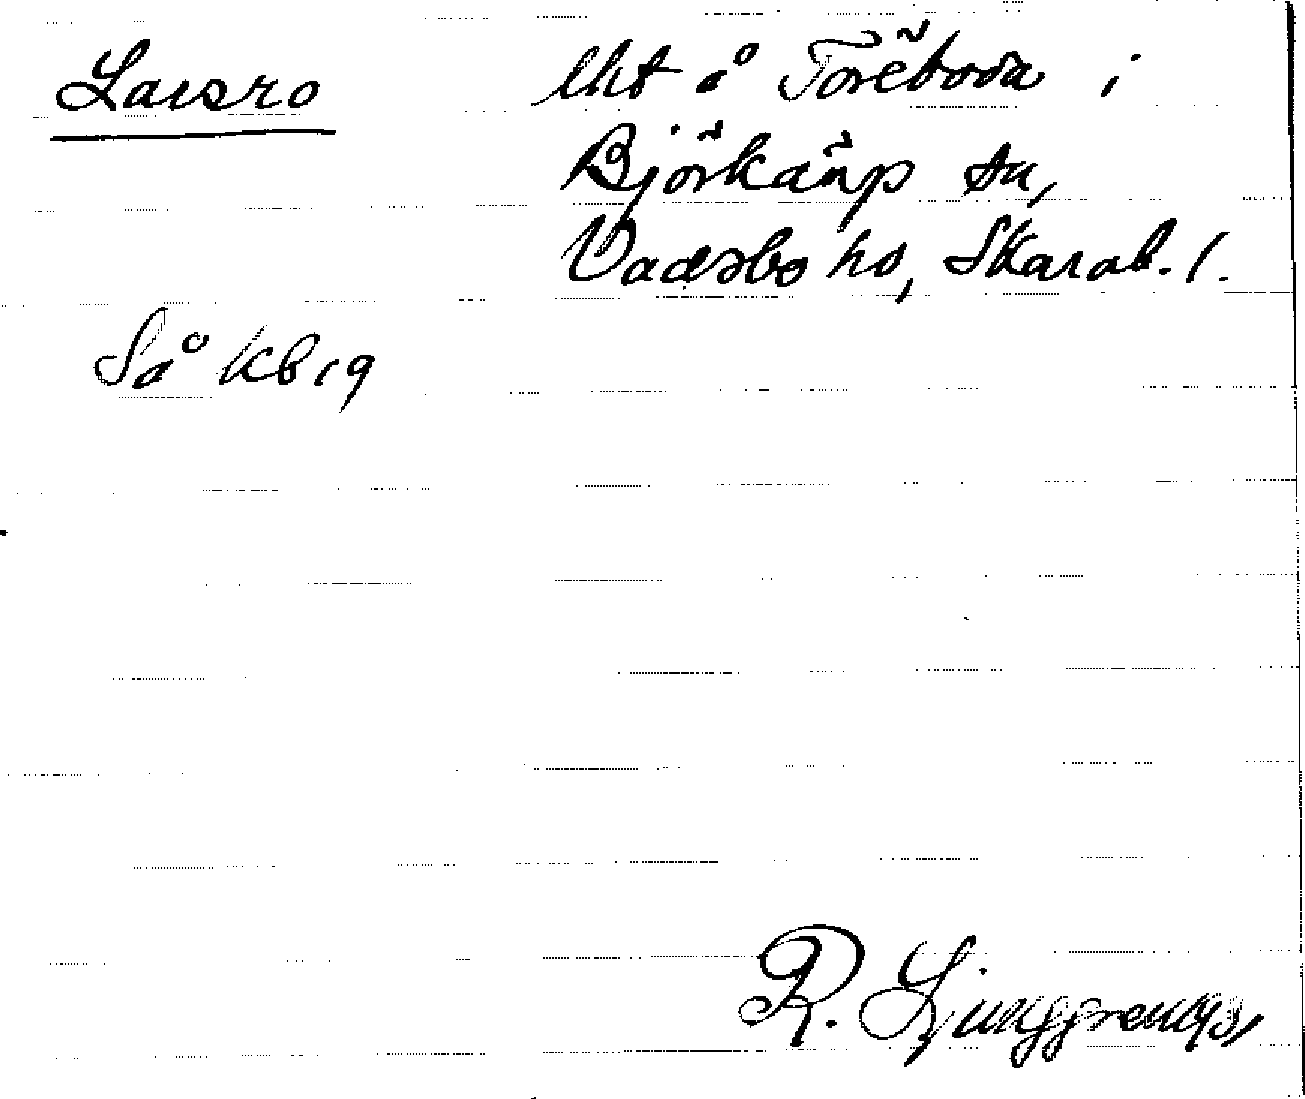 Larsro
lht å Töreboda i
Björkäng sn,
Vadsbo hd, Skarab. l.
Så Kb 19
R. Ljunggren